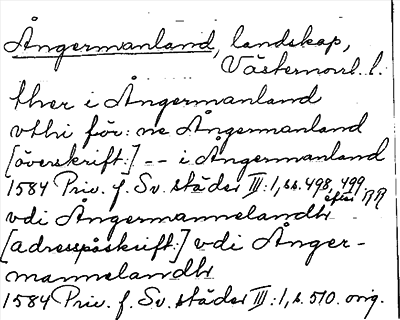 Ångermanland, landskap,
Västernorrl. l.
ther i Ångermanland
vthi för: ne Ångermanland
[överskrift:] -- i Ångermanland
1584 Priv. f. Sv. städer III:1, s.s. 498, 499
efter RR
vdi Ångermannelandh
[adresspåskrift:] vdi Ånger-
mannelandh
1584 Priv. f. Sv. städer III:1, s. 510. orig.